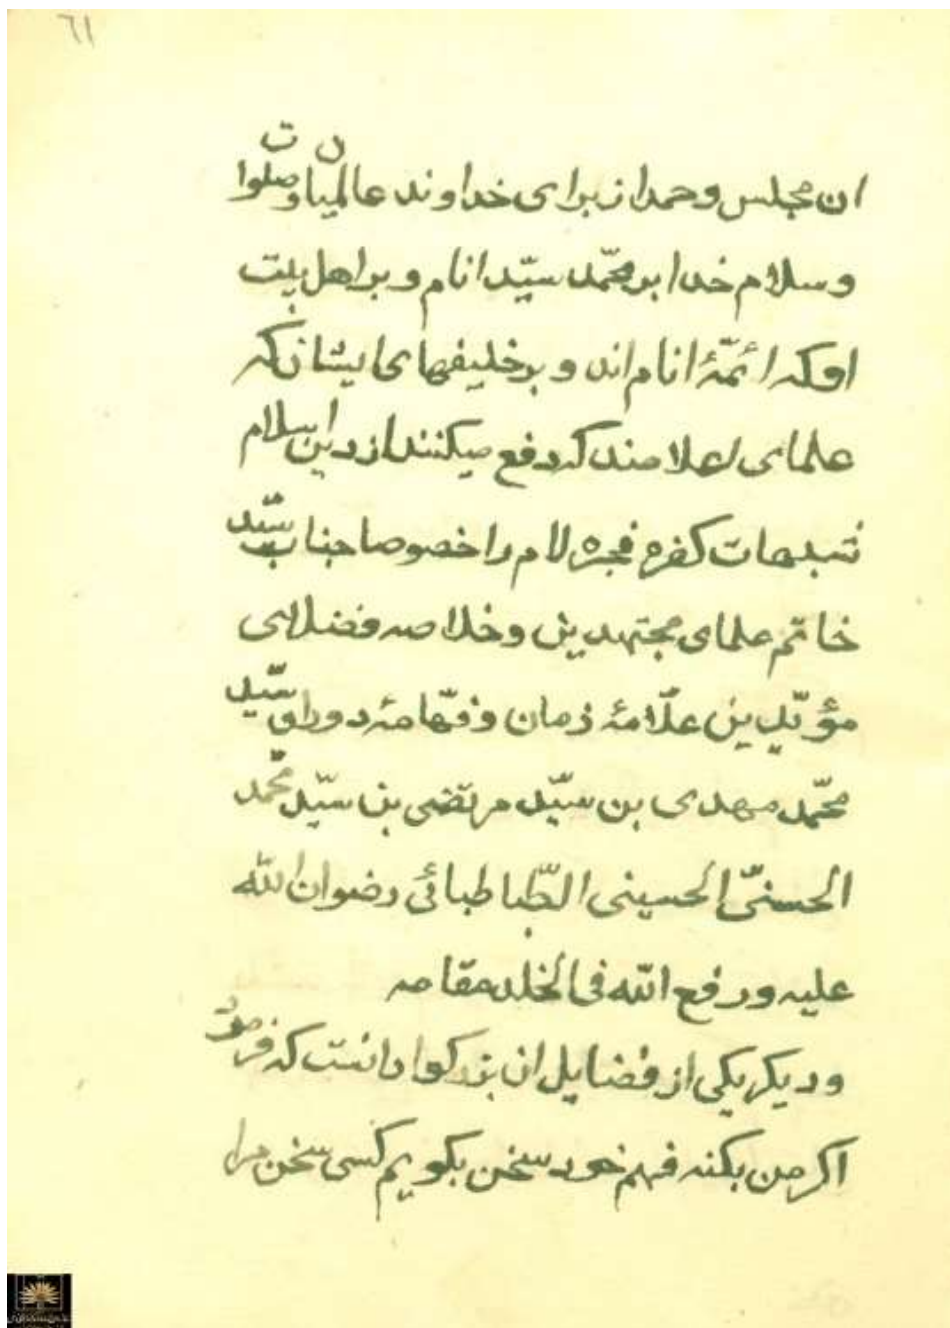 ٦١
ان مجلس وحمد از برای خداوند عالمیان وصلوات
وسلام خدا بر محمّد سیّد انام و بر اهل بیت
او که ائمّهٔ انام اند و بر خلیفهای ایشان که
علمای اعلامند که دفع میکنند از دین اسلام
شبهات کفره فجره لام را خصوصا جناب سیّد
خاتم علمای مجتهدین وخلاصه فضلای
مؤیّدین علّامهٔ زمان و فهّامهٔ دوران سیّد
محمّد مهدی بن سیّد مرتضی بن سیّد محمّد
الحسنیّ الحسینی الطّباطبائی رضوان اللّه
علیه ورفع اللّه فی الخلد مقامه
ودیکر یکی از فضایل ان بزرکوار انست که فرمود
اکر من بکنه فهم خود سخن بکویم کسی سخن مرا